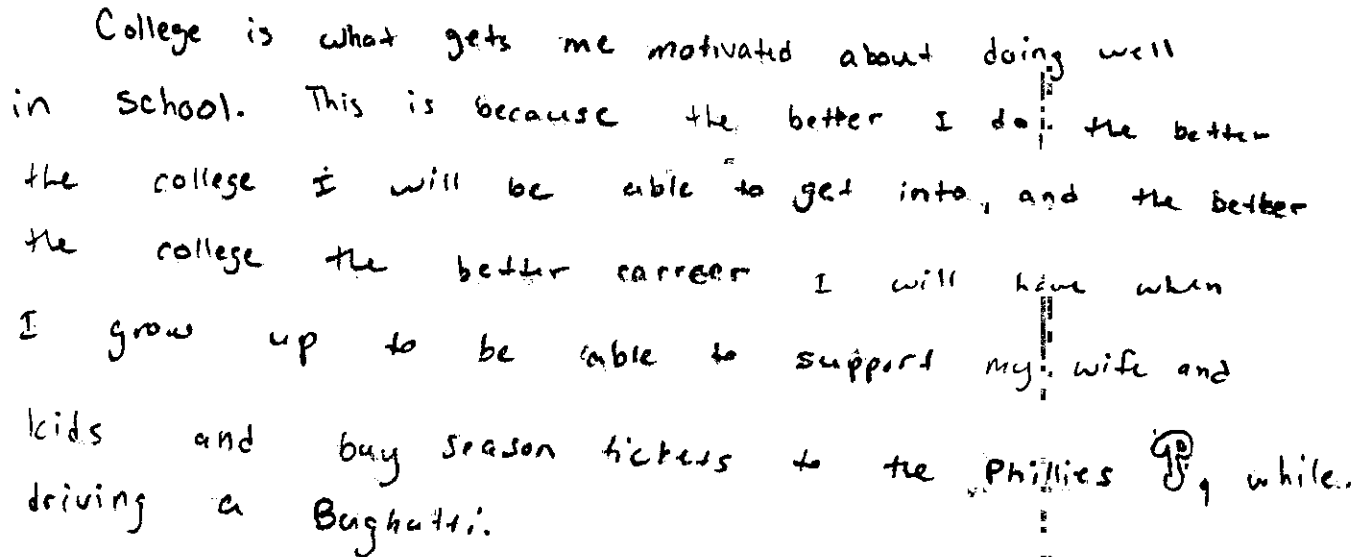 College is what gets me motivated about doing well
in school. This is because the better I do the better
the college I will be able to get into, and the better
the college the better carreer I will have when
I grow up to be able to support my wife and
kids and buy season tickets to the Phillies P, while
driving a Bughatti.